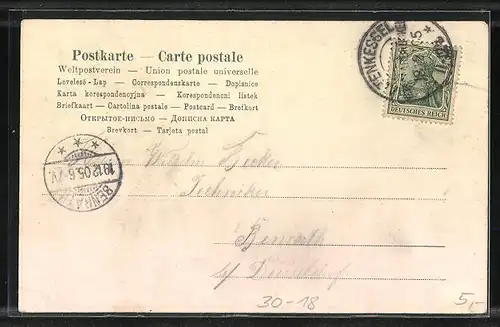 Postkarte — Carte postale
Weltpostverein — Union postale universelle
Levelező-Lap — Correspondenskarte — Dopisnice
Karta korespondencyjna — Korespondenční lístek
Briefkaart — Cartolina postale — Postcard — Brefkort
ОТКРЫТОЕ ПИСЬМО — ДОПИСНА КАРТА
Brevkort — Tarjeta postal
DEUTSCHES REICH
BENRATH
19.12.05.6-7V.
Wilhelm Becker
Techniker
Benrath
b/ Düsseldorf
30-18
5,-